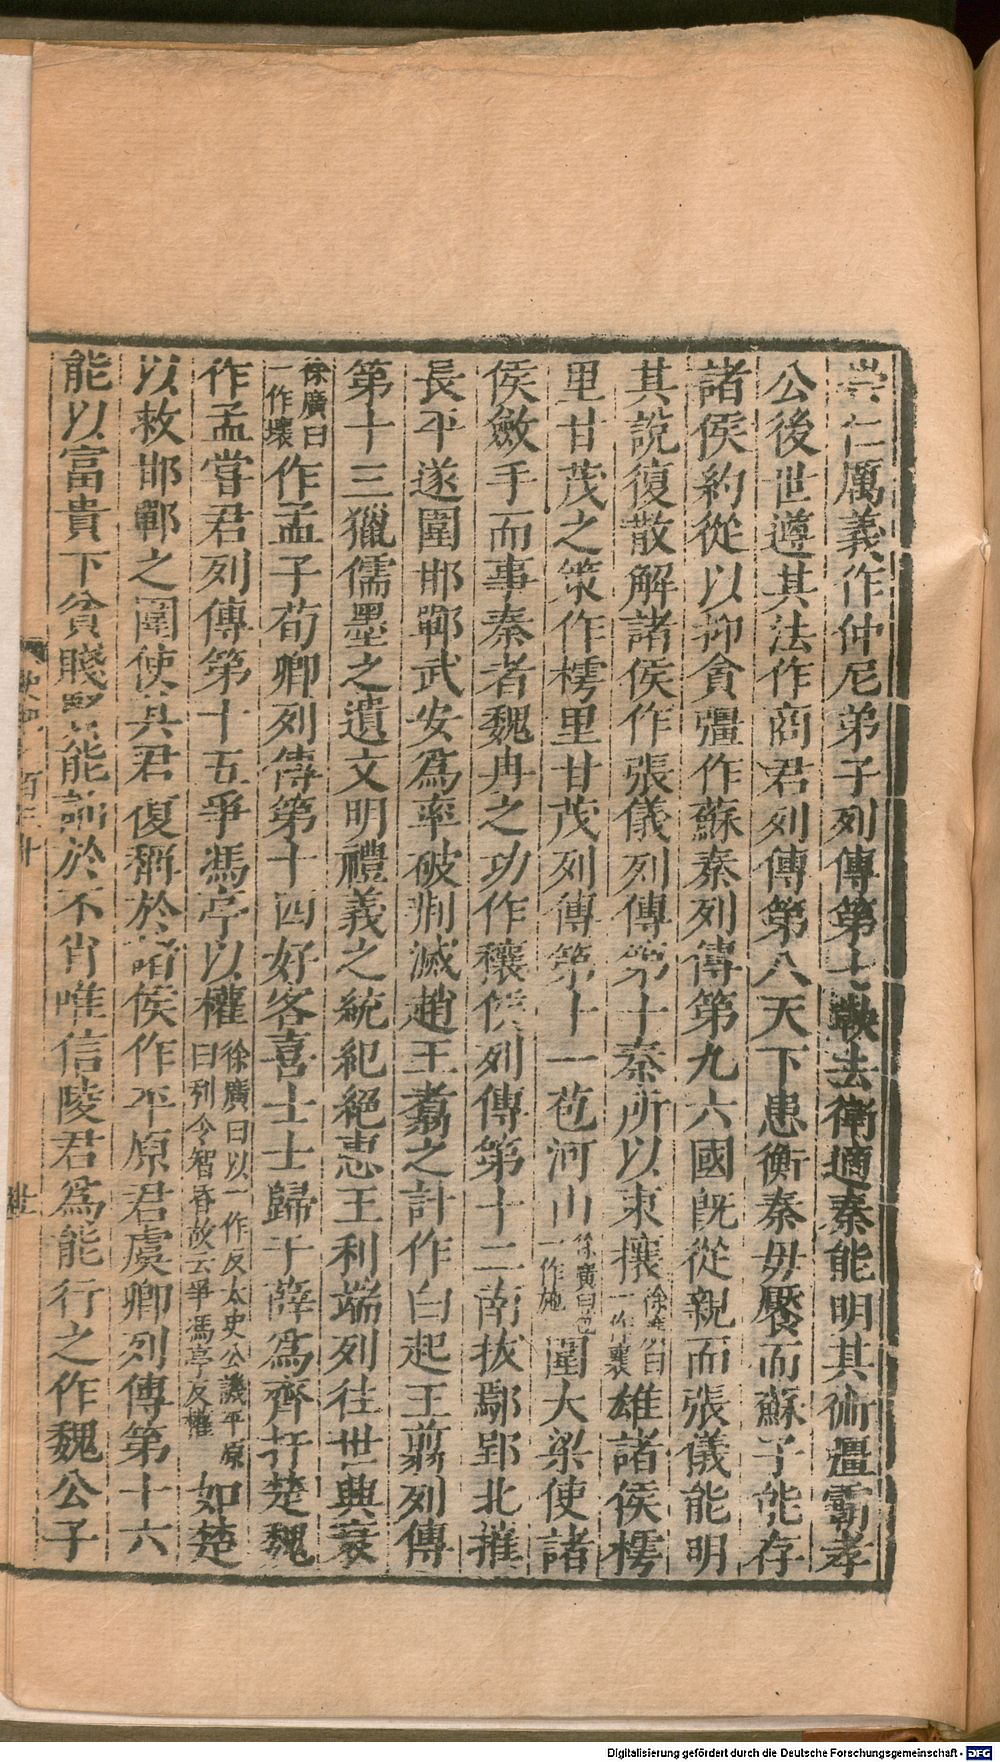 崇仁厲義作仲尼弟子列傳第七鞅去衛適秦能明其術彊霸孝
公後世遵其法作商君列傳第八天下患衡秦毋饜而蘇子能存
諸侯約從以抑貪彊作蘇秦列傳第九六國旣從親而張儀能明
其說復散解諸侯作張儀列傳第十秦所以東攘徐廣曰一作襄雄諸侯樗
里甘茂之策作樗里甘茂列傳第十一苞河山徐廣曰苞一作施圍大梁使諸
侯斂手而事秦者魏冉之功作穰侯列傳第十二南拔鄢郢北摧
長平遂圍邯鄲武安爲率破荆滅趙王翦之計作白起王翦列傳
第十三獵儒墨之遺文明禮義之統紀絕惠王利端列往世興衰
徐廣曰一作壞作孟子荀卿列傳第十四好客喜士士歸于薛爲齊扞楚魏
作孟嘗君列傳第十五爭馮亭以權徐廣曰以一作反太史公譏平原曰利令智昏故云爭馮亭反權如楚
以救邯鄲之圍使其君復稱於諸侯作平原君虞卿列傳第十六
能以富貴下貧賤賢能詘於不肖唯信陵君爲能行之作魏公子
百三十
Digitalisierung gefördert durch die Deutsche Forschungsgemeinschaft - DFG